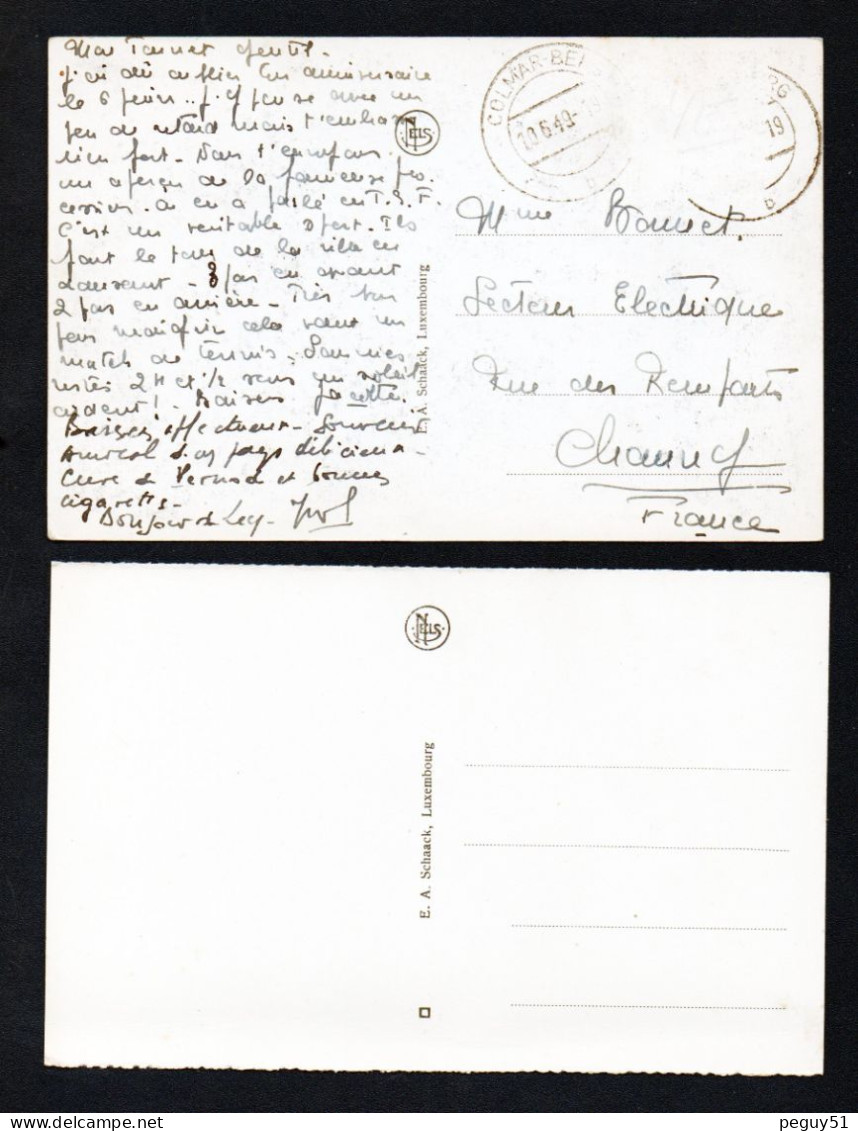 Mon gentil.
j'ai dû oublier ton anniversaire
le 6 juin.. j'y pense avec un
peu de retard mais t'embrasse
bien fort - Nous t'envoyons
un aperçu de la fameuse pro
cession. on en a parlé en T.S.F.
C'est un véritable sport. Ils
font le tour de la ville en
dansant - 3 pas en avant
2 pas en arrière - Très bon
pour maigrir cela vaut un
match de tennis. Sommes
restés 2 H et 1/2 sous un soleil
ardent! - Baisers
Baisers affectueux - Souvenir
amical d'un pays délicieux -
Cure de Pernod et bonnes
cigarettes -
Bonjour de
NELS
COLMAR-BE
10.6.49-19
RG
19
b
b
Mme Bonnet.
Secteur Electrique
Rue des Remparts
Chauny
France
E. A. Schaack, Luxembourg
NELS
E. A. Schaack, Luxembourg
peguy51